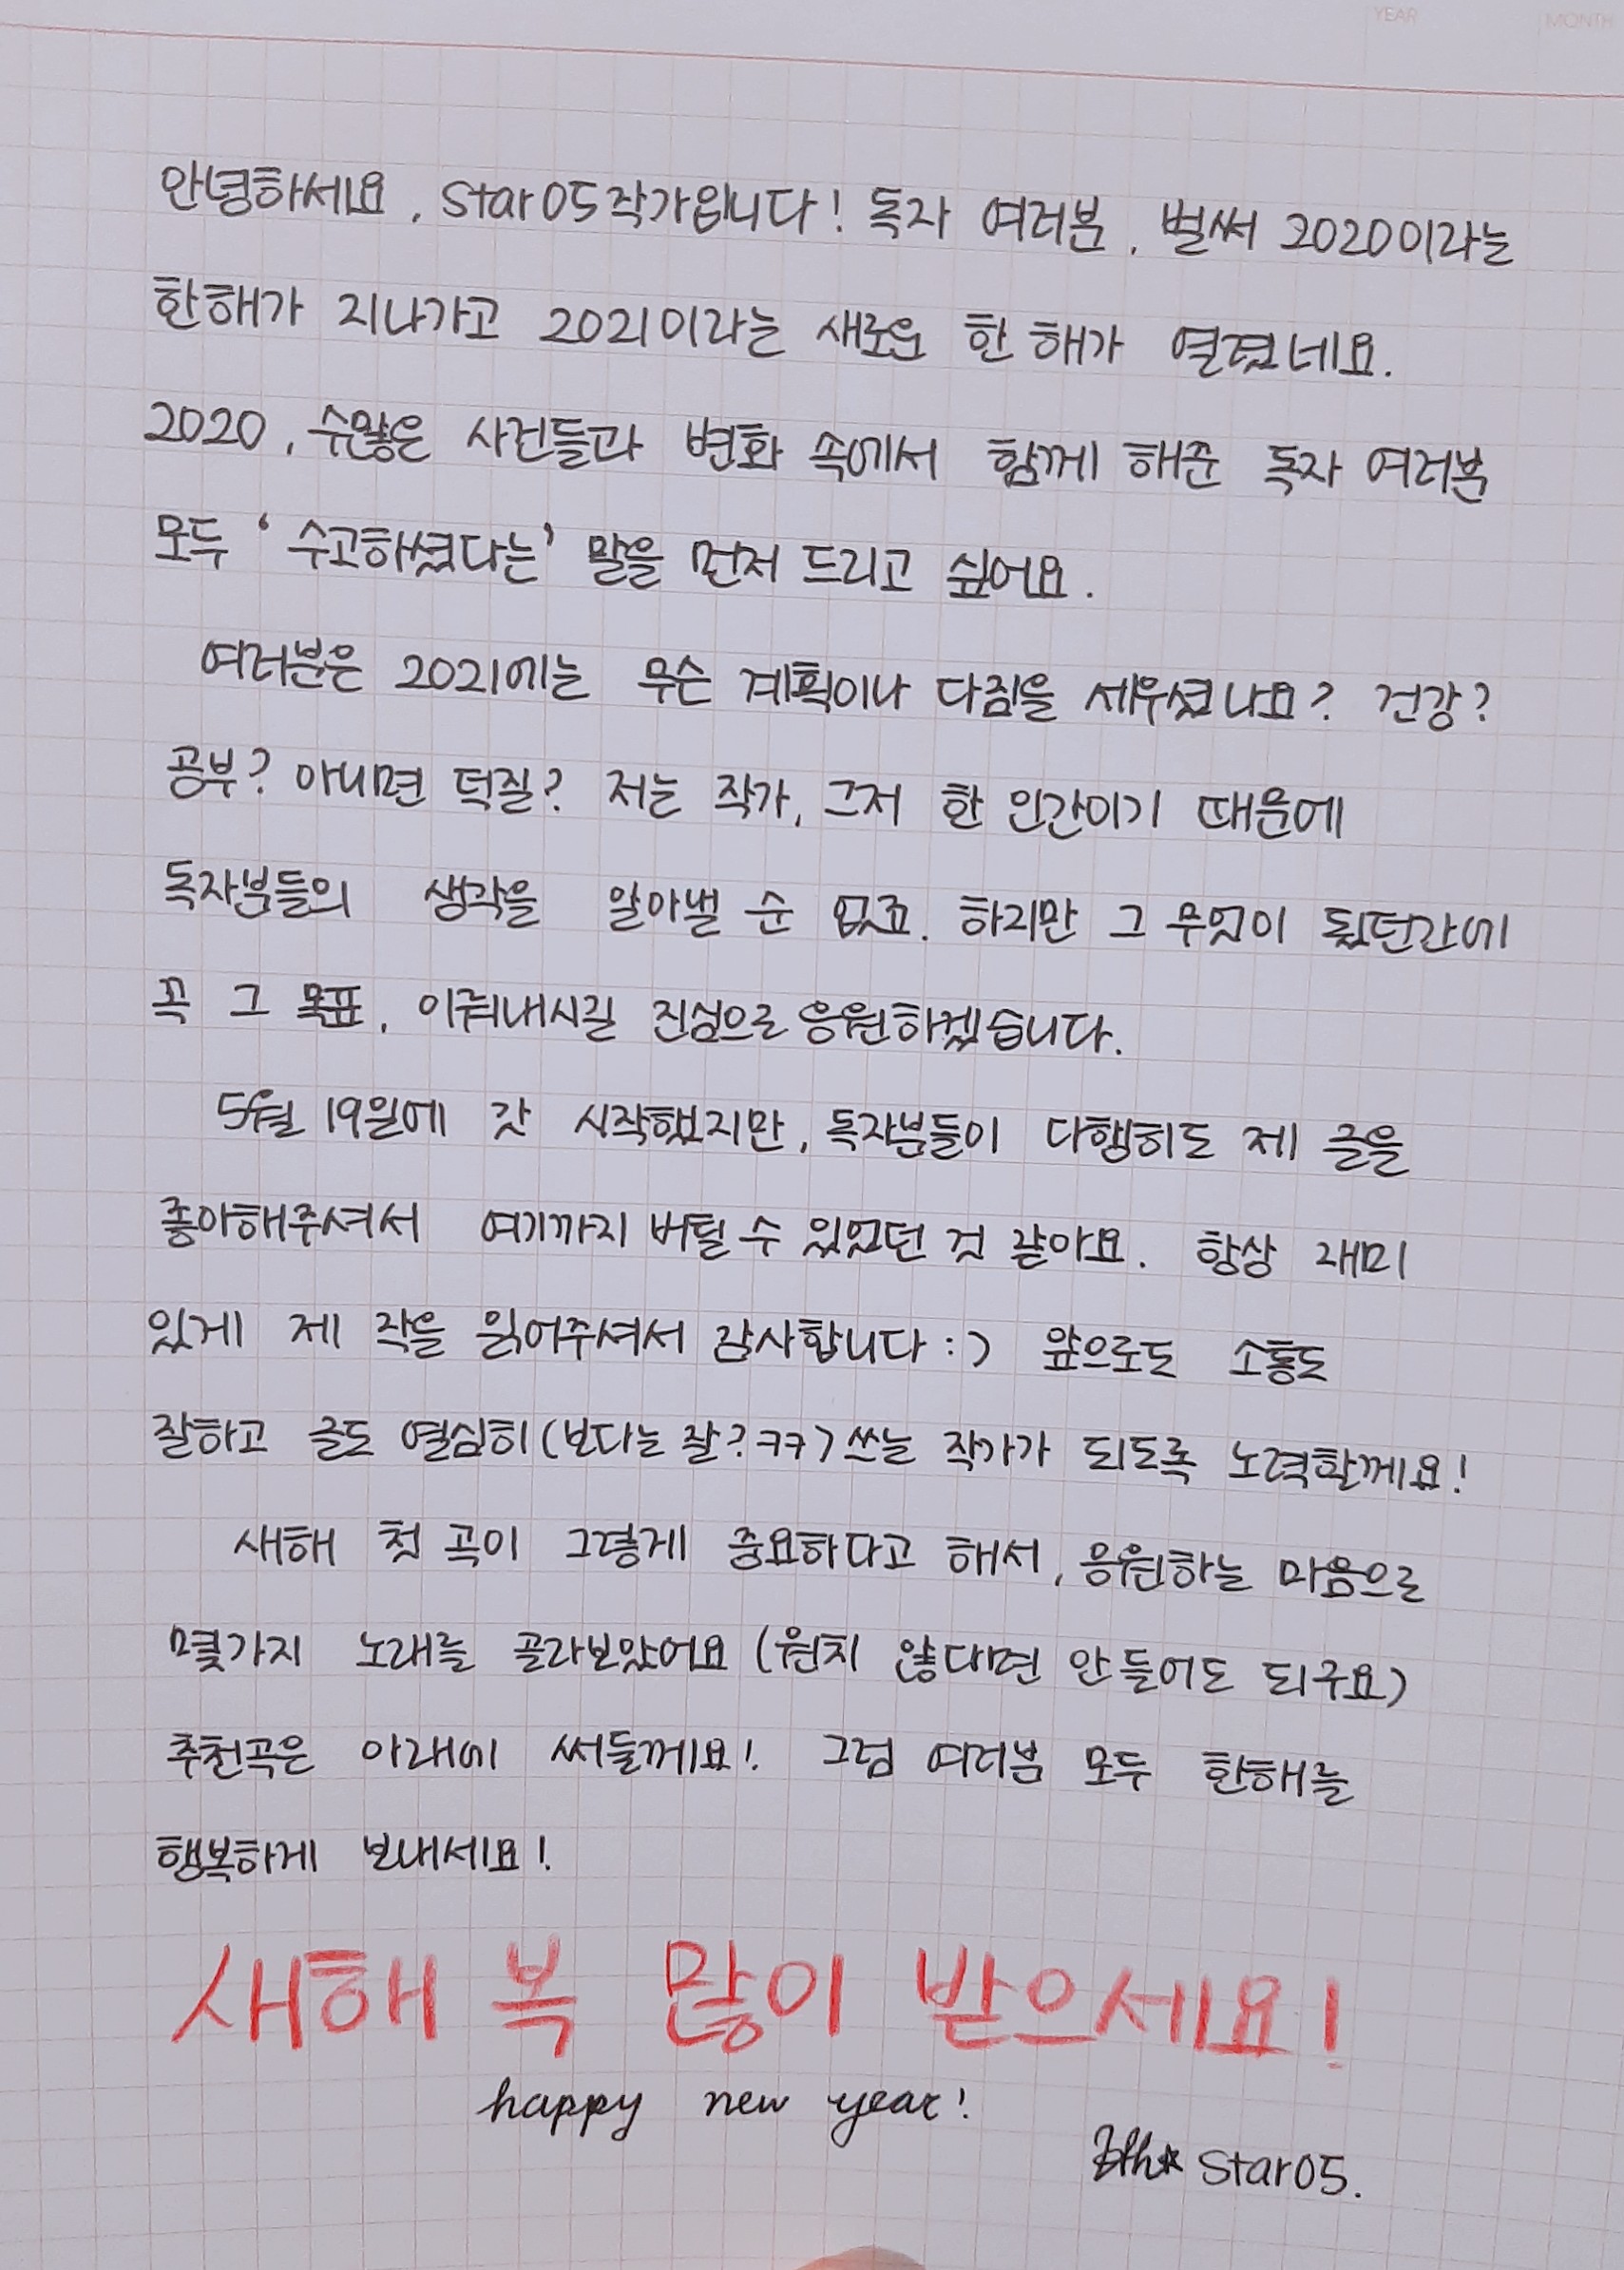 YEAR MONTH
안녕하세요, Star05작가입니다! 독자 여러분, 벌써 2020이라는
한해가 지나가고 2021이라는 새로운 한 해가 열렸네요.
2020, 수많은 사건들과 변화 속에서 함께 해준 독자 여러분
모두 '수고하셨다는' 말을 먼저 드리고 싶어요.
여러분은 2021에는 무슨 계획이나 다짐을 세우셨나요? 건강?
공부? 아니면 덕질? 저는 작가, 그저 한 인간이기 때문에
독자분들의 생각을 알아낼 순 없죠. 하지만 그 무엇이 됬던간에
꼭 그 목표, 이뤄내시길 진심으로 응원하겠습니다.
5월 19일에 갓 시작했지만, 독자분들이 다행히도 제 글을
좋아해주셔서 여기까지 버틸 수 있었던 것 같아요. 항상 재미
있게 제 작을 읽어주셔서 감사합니다:) 앞으로도 소통도
잘하고 글도 열심히(보다는 잘?ㅋㅋ) 쓰는 작가가 되도록 노력할께요!
새해 첫 곡이 그렇게 중요하다고 해서, 응원하는 마음으로
몇가지 노래를 골라보았어요 (원치 않다면 안 들어도 되구요)
추천곡은 아래에 써둘께요! 그럼 여러분 모두 한해를
행복하게 보내세요!
새해 복 많이 받으세요!
happy new year!
Star05.